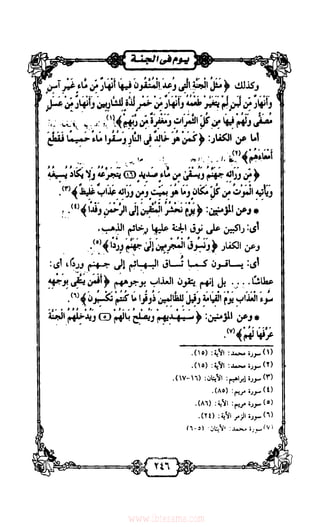 يوم في الجنة
وكذلك ﴿ مَثَلُ الْجَنَّةِ الَّتِي وُعِدَ الْمُتَّقُونَ فِيهَا أَنْهَارٌ مِّن مَّاءٍ غَيْرِ آسِنٍ
وَأَنْهَارٌ مِّن لَّبَنٍ لَّمْ يَتَغَيَّرْ طَعْمُهُ وَأَنْهَارٌ مِّنْ خَمْرٍ لَّذَّةٍ لِّلشَّارِبِينَ وَأَنْهَارٌ مِّنْ عَسَلٍ
مُّصَفًّى وَلَهُمْ فِيهَا مِن كُلِّ الثَّمَرَاتِ وَمَغْفِرَةٌ مِّن رَّبِّهِمْ ﴾(١).
أما عن الكفار: ﴿ كَمَنْ هُوَ خَالِدٌ فِي النَّارِ وَسُقُوا مَاءً حَمِيمًا فَقَطَّعَ
أَمْعَاءَهُمْ ﴾(٢).
﴿ مِّن وَرَائِهِ جَهَنَّمُ وَيُسْقَىٰ مِن مَّاءٍ صَدِيدٍ (١٦) يَتَجَرَّعُهُ وَلَا يَكَادُ يُسِيغُهُ
وَيَأْتِيهِ الْمَوْتُ مِن كُلِّ مَكَانٍ وَمَا هُوَ بِمَيِّتٍ وَمِن وَرَائِهِ عَذَابٌ غَلِيظٌ ﴾(٣).
* وعن المؤمنين: ﴿ يَوْمَ نَحْشُرُ الْمُتَّقِينَ إِلَى الرَّحْمَٰنِ وَفْدًا ﴾(٤).
أى: راكبين على نوق الجنة عليها رحائم الذهب.
وعن الكفار ﴿ وَنَسُوقُ الْمُجْرِمِينَ إِلَىٰ جَهَنَّمَ وِرْدًا ﴾(٥).
أى: يساقون كما تُساق البهائم إلى جهنم وِردًا، أى:
عطاشًا... بل إنهم يتقون العذاب بوجوههم ﴿ أَفَمَن يَتَّقِي بِوَجْهِهِ
سُوءَ الْعَذَابِ يَوْمَ الْقِيَامَةِ وَقِيلَ لِلظَّالِمِينَ ذُوقُوا مَا كُنتُمْ تَكْسِبُونَ ﴾(٦).
* وعن المؤمنين: ﴿ سَيَهْدِيهِمْ وَيُصْلِحُ بَالَهُمْ (٥) وَيُدْخِلُهُمُ الْجَنَّةَ
عَرَّفَهَا لَهُمْ ﴾(٧).
(١) سورة محمد: الآية: (١٥).
(٢) سورة محمد: الآية: (١٥).
(٣) سورة إبراهيم: الآيتان: (١٦-١٧).
(٤) سورة مريم: الآية: (٨٥).
(٥) سورة مريم: الآية: (٨٦).
(٦) سورة الزمر الآية: (٢٤).
(٧) سورة محمد: الآيتان: (٥-٦)
٢٤٦